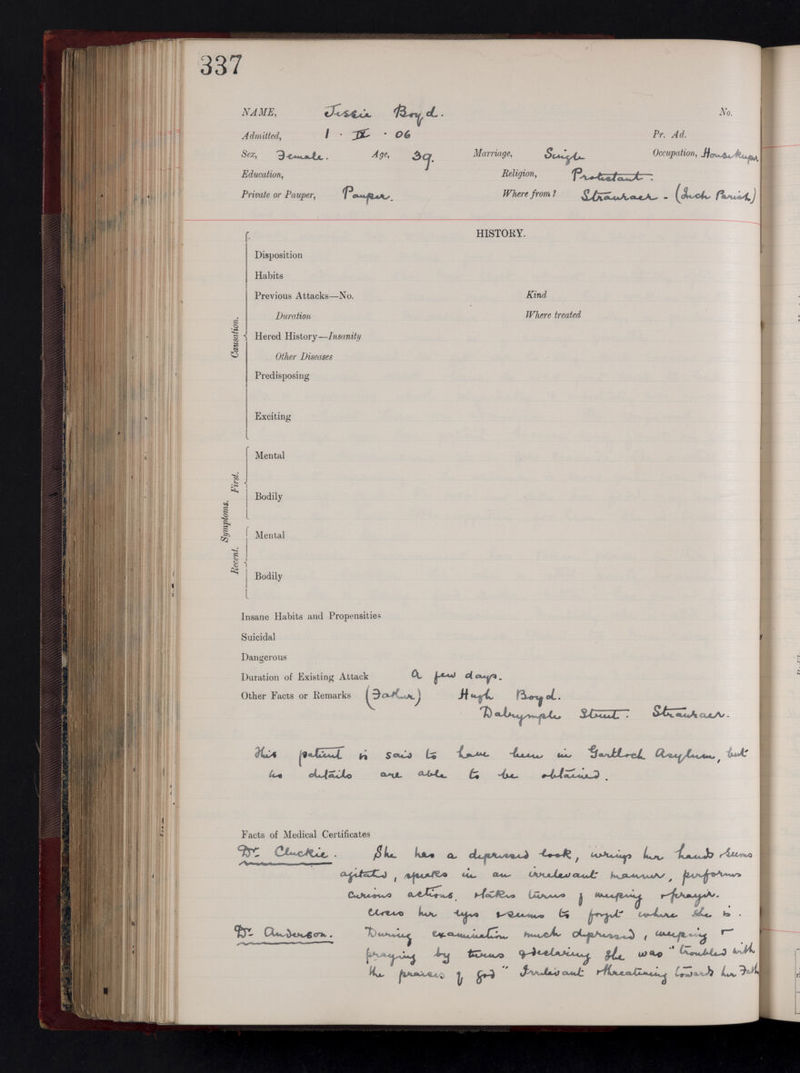 337
NAME, Jessie Boyd. No.
Admitted, 1 · IX · 06 Pr. Ad.
Sex, Female. Age, 39. Marriage, Single Occupation, Housekeeper
Education, Religion, Protestant.
Private or Pauper, Pauper. Where from? Stranraer - (Inch Parish)
HISTORY.
Causation.
Disposition
Habits
Previous Attacks—No. Kind
Duration Where treated
Hered History—Insanity
Other Diseases
Predisposing
Exciting
Symptoms.
First.
Mental
Bodily
Recent.
Mental
Bodily
Insane Habits and Propensities
Suicidal
Dangerous
Duration of Existing Attack A few days.
Other Facts or Remarks (Father) Hugh Boyd.
Dalrymple Street. Stranraer.
This patient is said to have been in Gartloch Asylum, but
no details are able to be obtained.
Facts of Medical Certificates
Dr. Cluckie. She has a depressed look, wrings her hands seems
agitated, speaks in an irrelevant manner, performs
curious actions, takes turns of weeping & prayer.
Closes her eyes & seems to forget where she is.
Dr. Anderson. During examination much depressed, weeping &
praying by turns & declaring she was "troubled with
the praises of God" Irrelevant & threatening towards her Fath